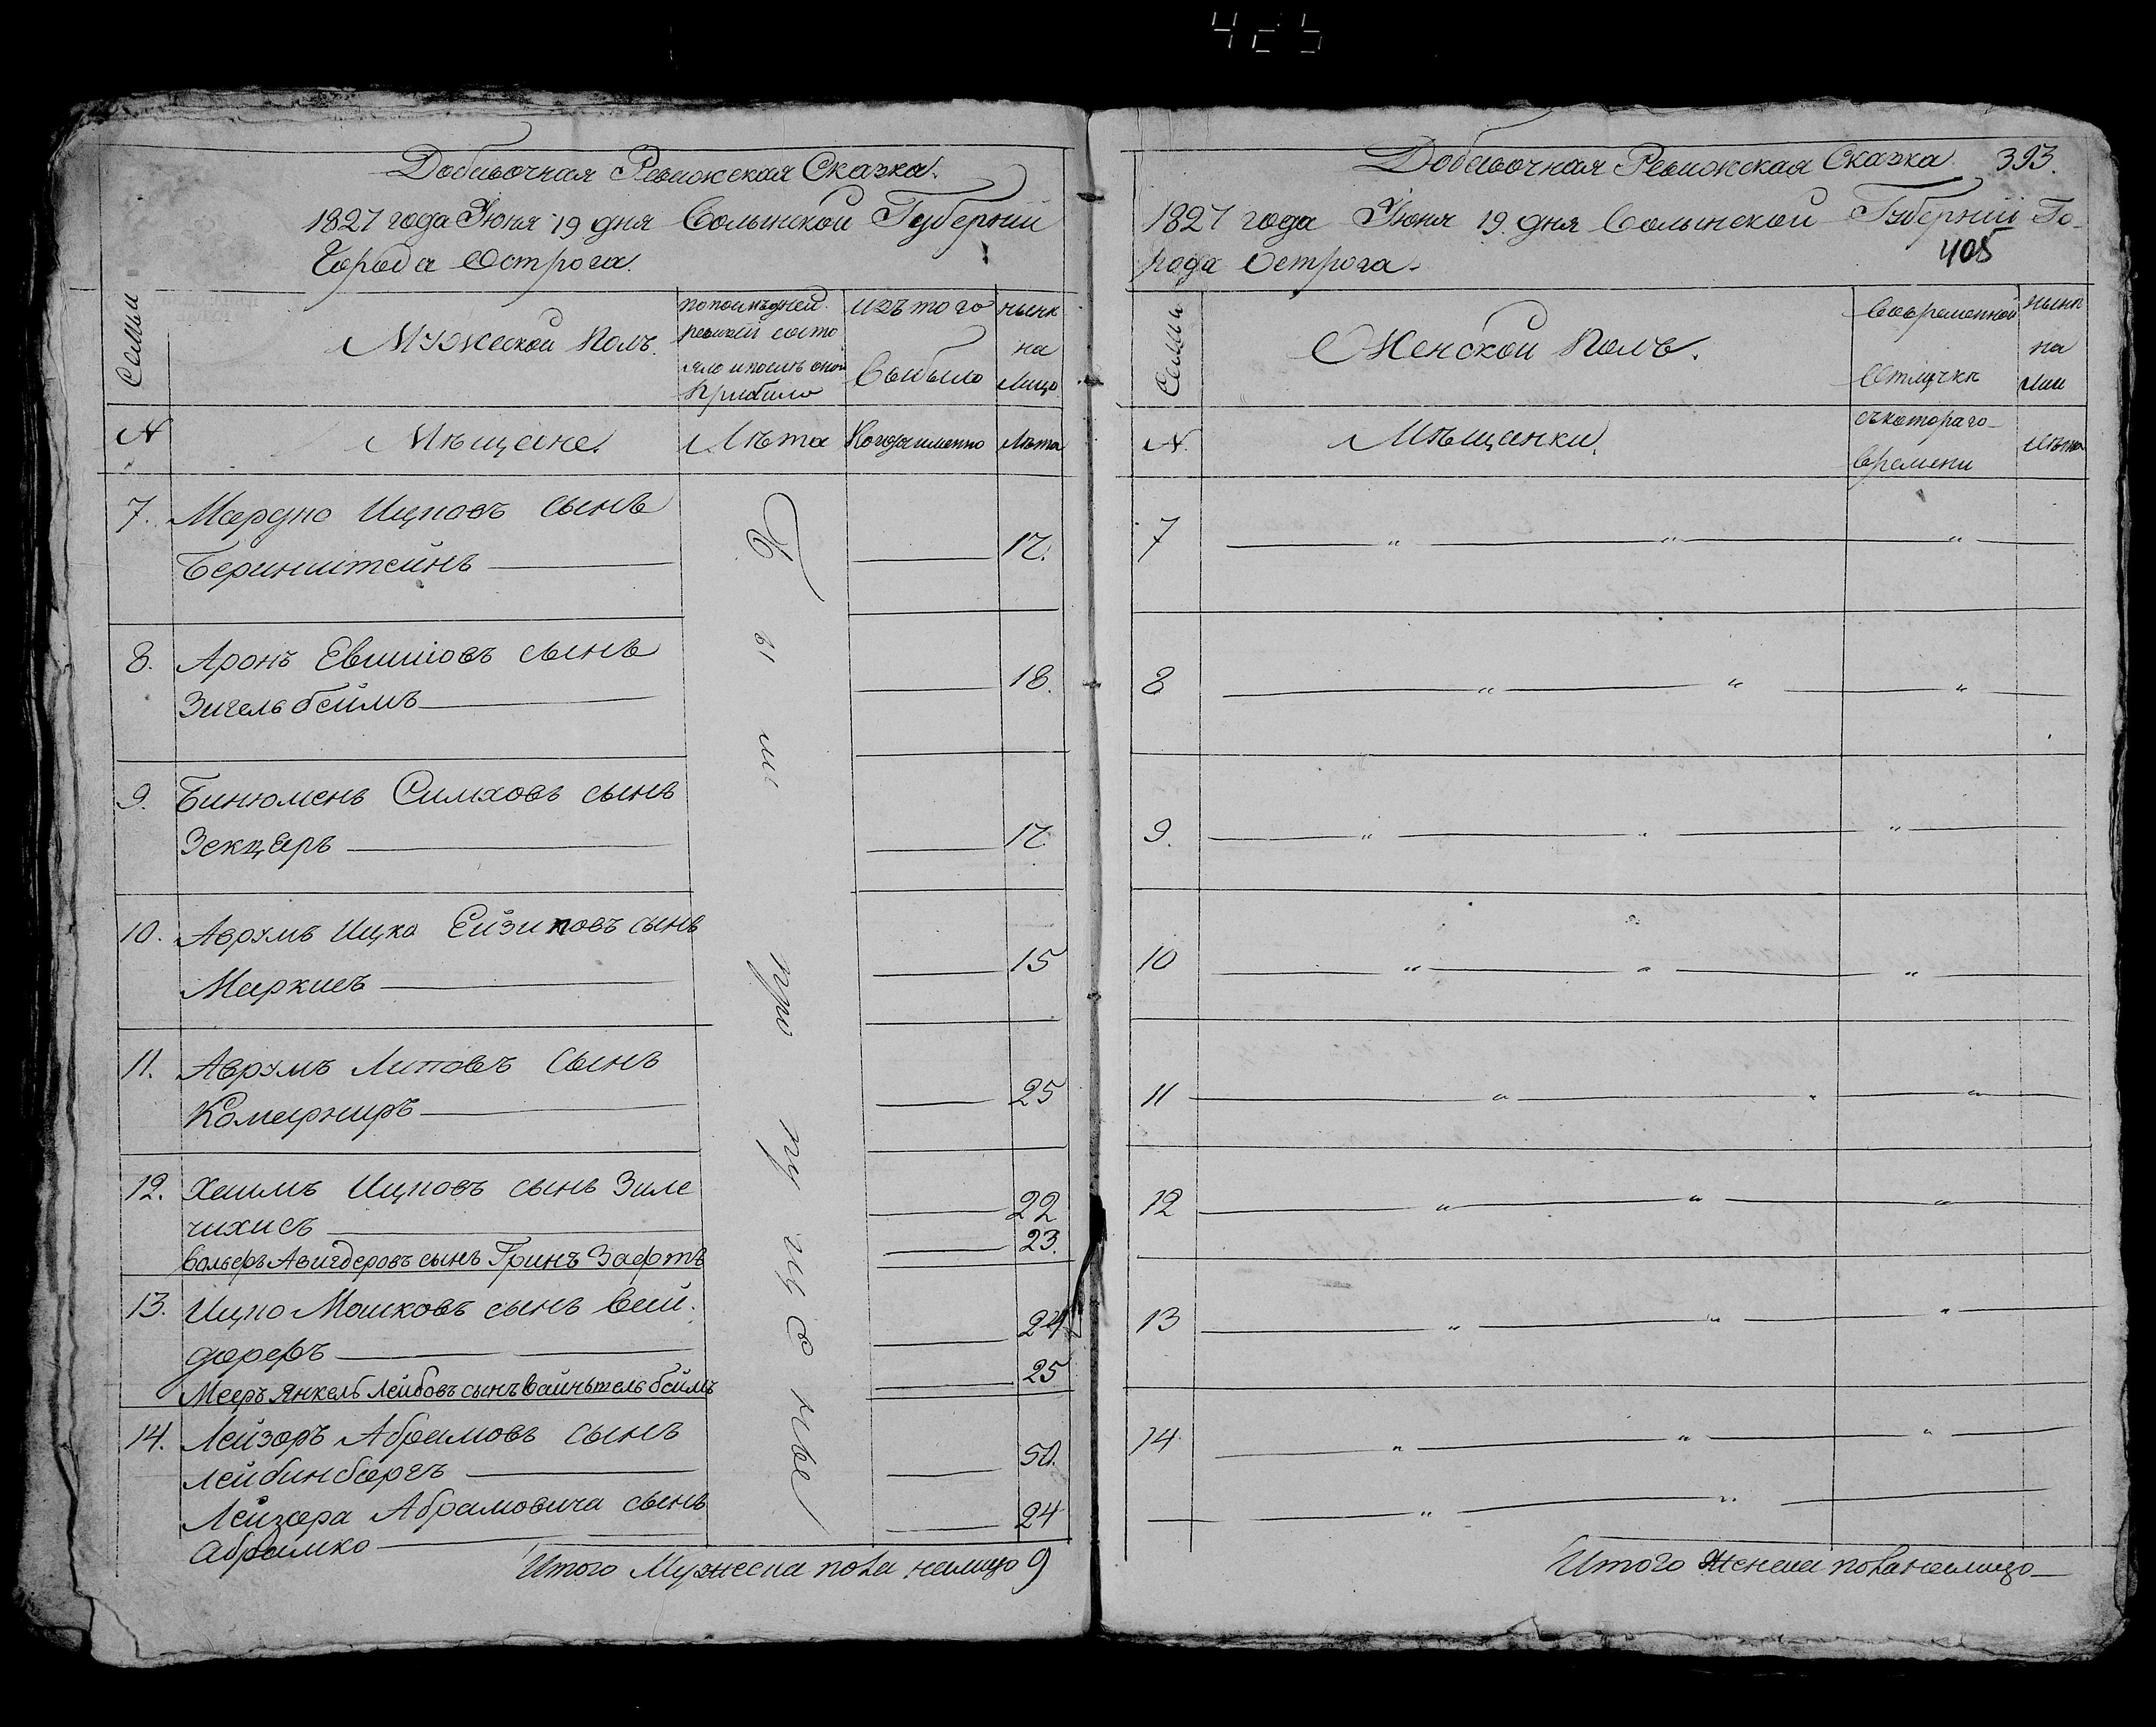 425
Добавочная Ревижская Сказка.
1827 года Июня 19 дня Волынской Губернии
Города Острога.
Семьи
Мужеской Полъ.
по последней
ревизіи состо
яло и после оной
прибыло
изъ того
выбыло
нынѣ
на
лицо
№
Мѣщане.
Лѣта
Когда именно
Лѣта
7. Мардко Ицковъ сынъ 17.
Беринштейнъ
8. Аронъ Евшіовъ сынъ 18.
Зигельбеймъ
9. Бинюменъ Симховъ сынъ
Зекцеръ 17
10. Аврумъ Ицко Ейзиковъ сынъ 15
Маркисъ
11. Аврумъ Липовъ сынъ 25
Комарниръ
12. Хаимъ Ицковъ сынъ Зиле 22
чихисъ
Вольфъ Авигдеровъ сынъ Гринъ Зафтъ 23.
13. Ицко Мошковъ сынъ Вай 24
дорфъ
Мееръ Янкель Лейбовъ сынъ Вайнтельбеймъ 25
14. Лейзоръ Абрамовъ сынъ 50.
Лейбинбаргъ
Лейзора Абрамовича сынъ 24
Абрамко
Были пропущены
Итого Мужеска пола налицо 9
Добавочная Ревижская Сказка 393.
1827 года Июня 19 дня Волынской Губерніи Го
рода Острога.
405
Семьи
Женской Полъ.
Вовременной
Отлучкѣ
нынѣ
на
лии
№
Мѣщанки.
съ котораго
времени
Лѣта
7 " " "
8 " " "
9. " " "
10 " " "
11 " " "
12 " " "
13 " " "
14 " " "
" "
Итого женска пола налицо